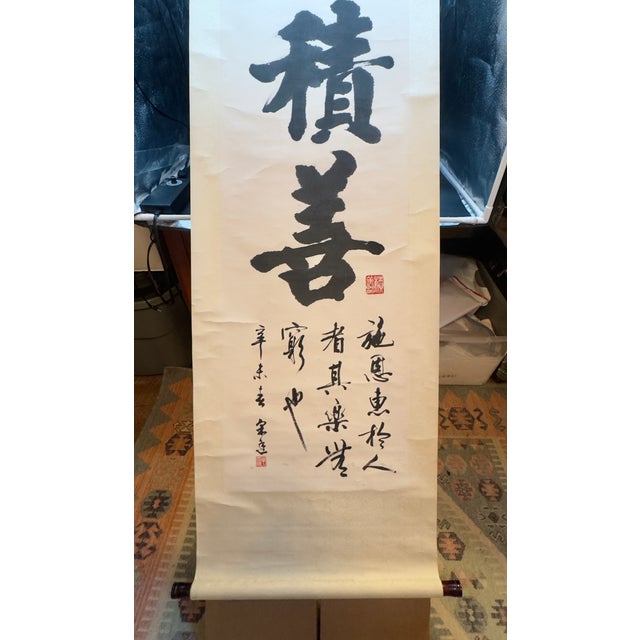 積善
施恩惠於人
者其樂無
窮也
辛未春